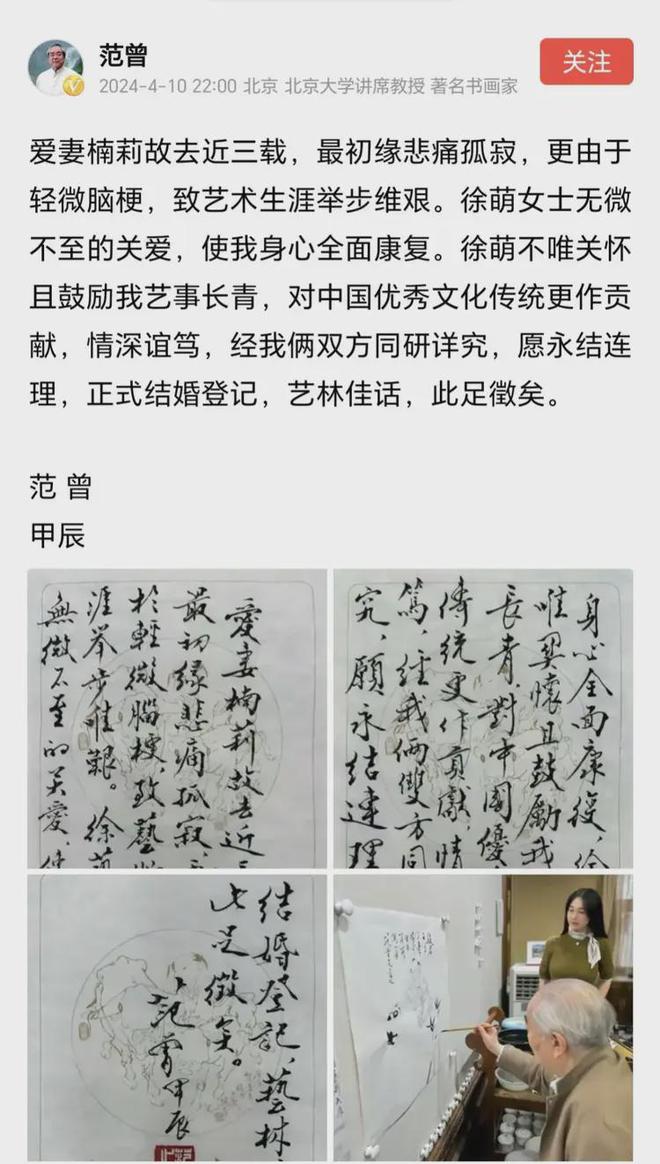 范曾
关注
2024-4-10 22:00 北京 北京大学讲席教授 著名书画家
爱妻楠莉故去近三载，最初缘悲痛孤寂，更由于
轻微脑梗，致艺术生涯举步维艰。徐萌女士无微
不至的关爱，使我身心全面康复。徐萌不唯关怀
且鼓励我艺事长青，对中国优秀文化传统更作贡
献，情深谊笃，经我俩双方同研详究，愿永结连
理，正式结婚登记，艺林佳话，此足徵矣。
范 曾
甲辰
愛妻楠莉故去近三
最初缘悲痛孤寂，
於輕微腦梗，致藝
涯举步维艱。徐萌
無微不至的关爱，使
身心全面康復，徐
唯関懷且鼓勵我
長青，對中國優
傳統更作貢獻，情
篤，經我俩雙方同
究，願永结連理
结婚登记，藝林
此足徵矣。
范曾甲辰